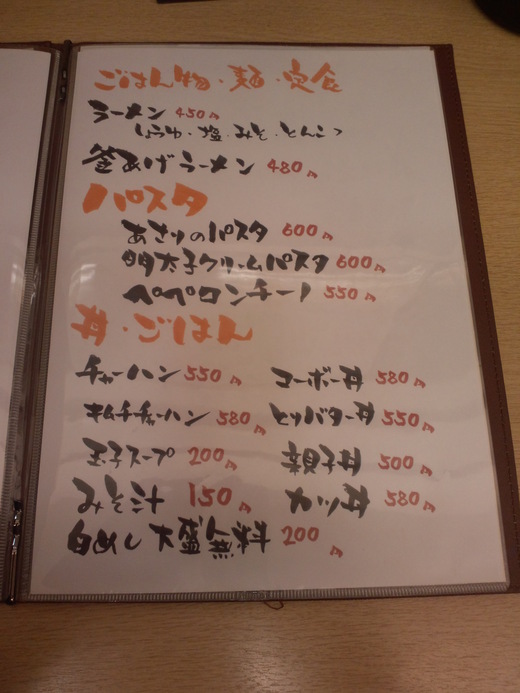 ごはん物・麺・定食
ラーメン 450円
しょうゆ・塩・みそ・とんこつ
釜あげラーメン 480円
パスタ
あさりのパスタ 600円
明太子クリームパスタ 600円
ペペロンチーノ 550円
丼・ごはん
チャーハン 550円 コーボー丼 580円
キムチチャーハン 580円 とりバター丼 550円
玉子スープ 200円 親子丼 500円
みそ汁 150円 カツ丼 580円
白めし 大盛無料 200円